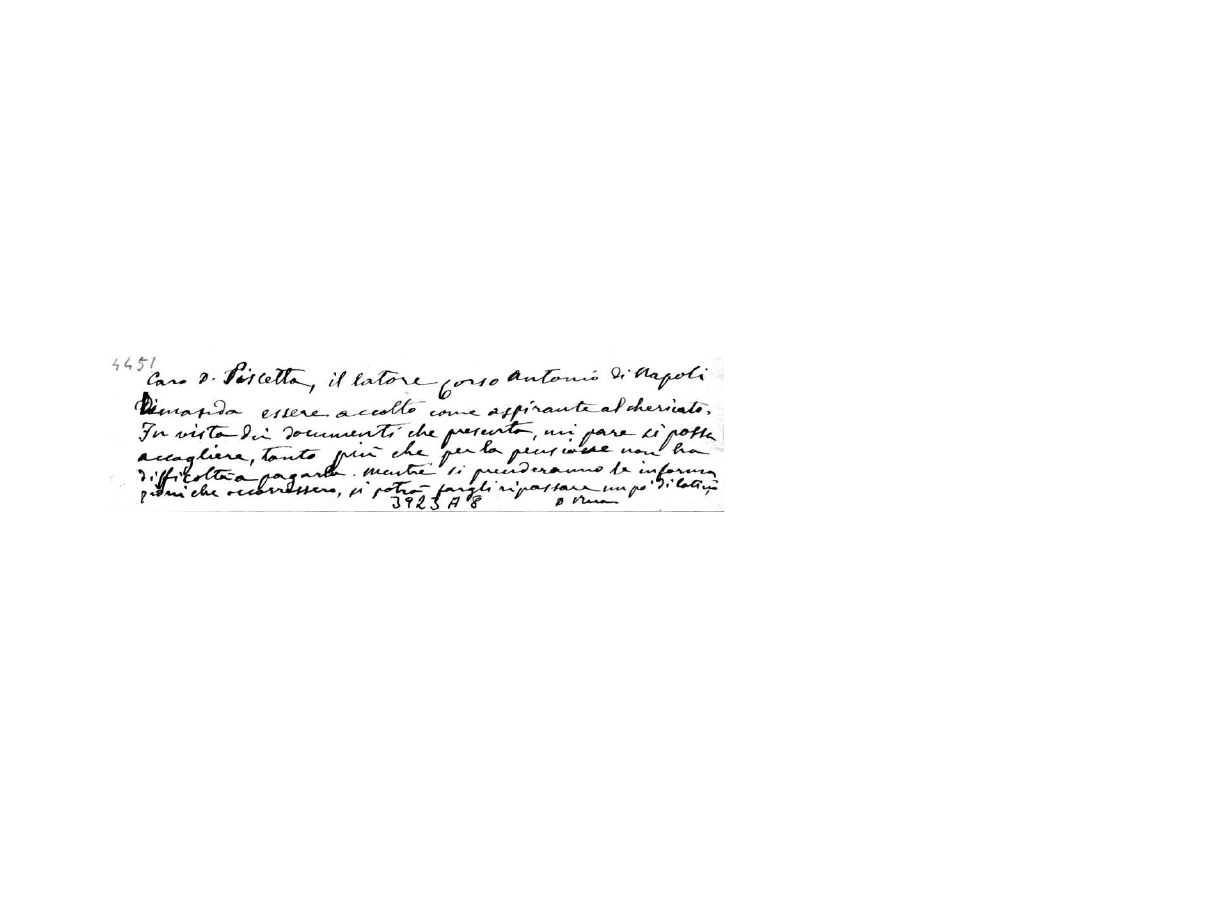 4451
Caro D. Piscetta, il latore Corso Antonio di Napoli
Dimanda essere accolto come aspirante al chericato.
In vista dei documenti che presenta, mi pare si possa
accogliere, tanto più che per la pensione non ha
difficoltà a pagarla. Mentre si prenderanno le informa
zioni che occorressero, si potrà fargli ripassare un po' di latino
3923 A 8 D Rua